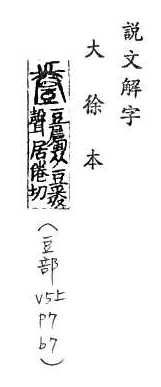 說文解字
大徐本
豆屬从豆𢍏
聲居倦切
(豆部
V5上
P7
b7)